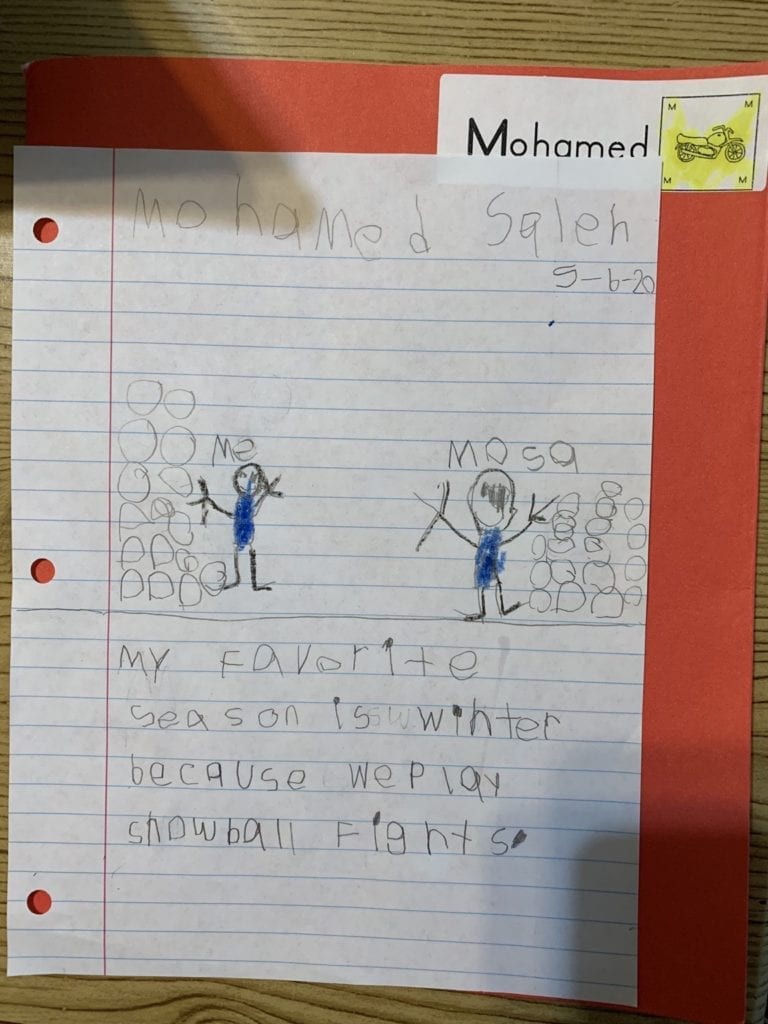 M M
Mohamed
M M
Mohamed Saleh
5-6-20
Me
Mosa
My Favorite
season is winter
because we Play
snowball Fights.